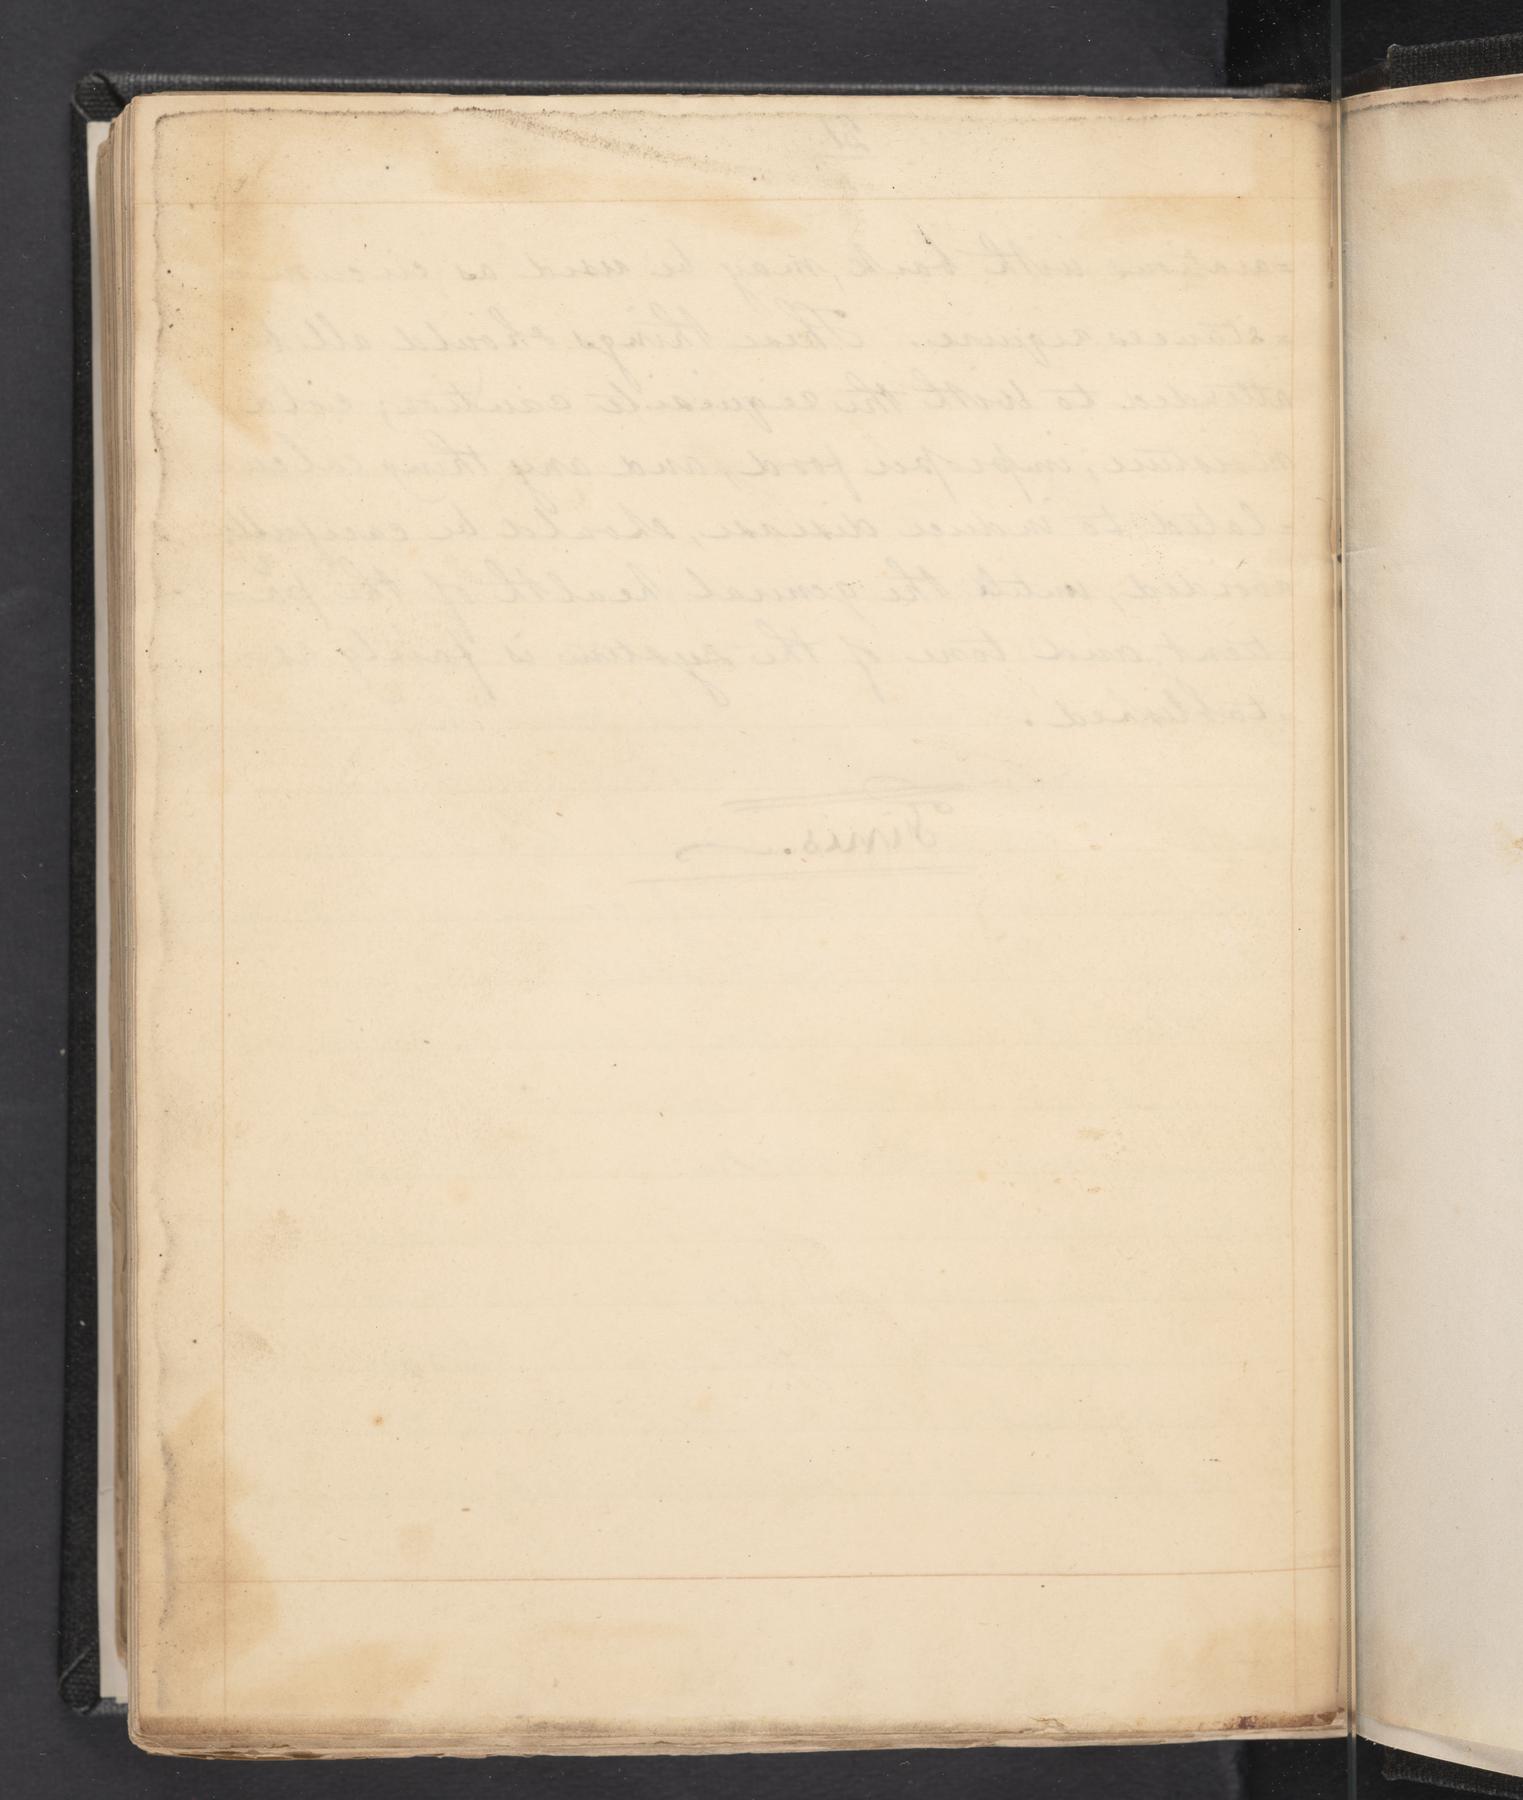 21
=arations with bark, may be used as circum
=stances require. These things should all be
attended to with the requisite caution; cold
moisture, improper food, and any thing calcu
=lated to induce disease, should be carefully
avoided, until the general health of the pa-
tient and tone of the system is fairly es
=tablished.
Finis.